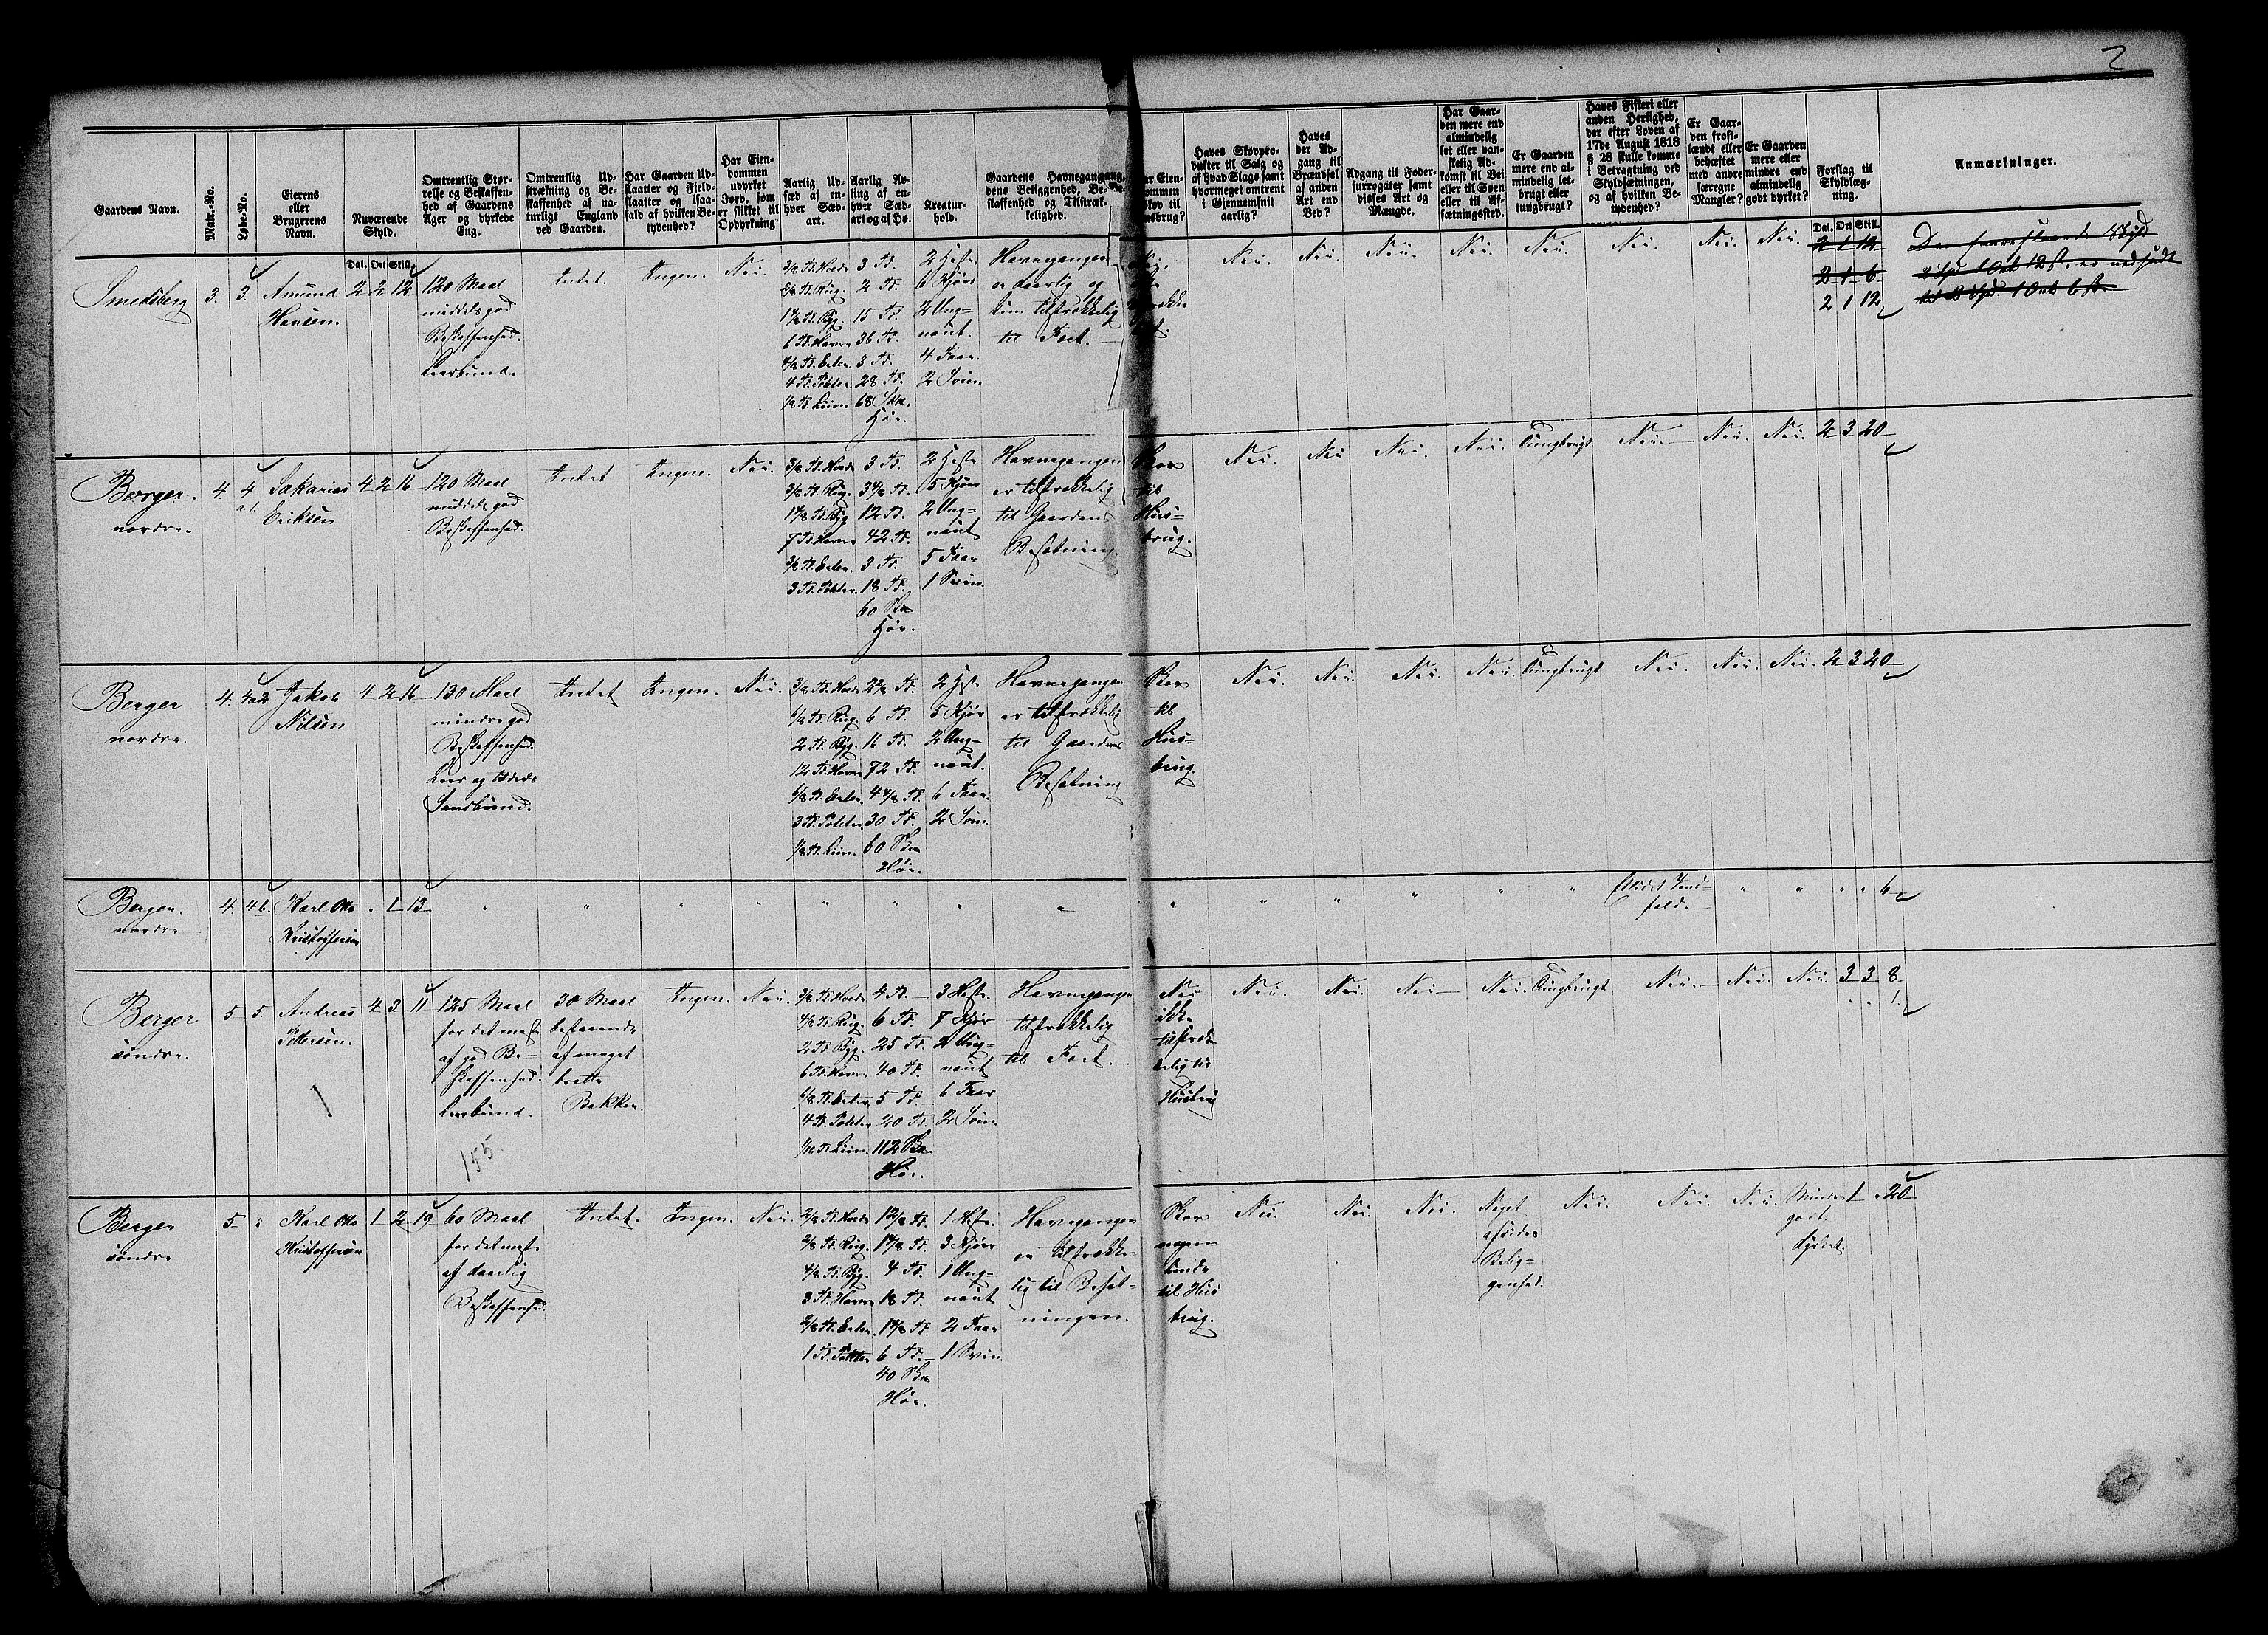 2
Gaardens Navn.
Matr.-No.
Løbe-No.
Eierens
eller
Brugerens
Navn.
Nuværende
Skyld.
Omtrentlig Stør-
relse og Beskaffen-
hed af Gaardens
Ager og dyrkede
Eng.
Omtrentlig Ud-
strækning og Be-
skaffenhed af na-
turligt England
ved Gaarden.
Har Gaarden Ud-
slaatter og Fjeld-
slaatter og isaa-
fald af hvilken Be-
tydenhed?
Har Eien-
dommen
udyrket
Jord, som
er skikket til
Opdyrkning
Aarlig Ud-
sæd af en-
hver Sæd-
art.
Aarlig Av-
ling af en-
hver Sæd-
art og af Hø.
Kreatur-
hold.
Gaardens Havnegang,
dens Beliggenhed, Be-
skaffenhed og Tilstræk-
kelighed.
Har Eien-
dommen
Skov til
Husbrug?
Haves Skovpro-
dukter til Salg og
af hvad Slags samt
hvormeget omtrent
i Gjennemsnit
aarlig?
Haves
der Ad-
gang til
Brændsel
af anden
Art end
Ved?
Adgang til Foder-
surrogater samt
disses Art og
Mængde.
Har Gaar-
den mere end
almindelig
let eller van-
skelig Ad-
komst til Vei
eller til Søen
eller til Af-
sætningssted.
Er Gaarden
mere end al-
mindelig let-
brugt eller
tungbrugt?
Haves Fiskeri eller
anden Herlighed,
der efter Loven af
17de August 1818
§ 28 skulle komme
i Betragtning ved
Skyldsætningen,
og af hvilken Be-
tydenhed?
Er Gaar-
den frost-
lændt eller
behæftet
med andre
særegne
Mangler?
Er Gaarden
mere eller
mindre end
almindelig
godt dyrket?
Forslag til
Skyldlæg-
ning.
Anmærkninger.
Dal. Ort Skill.
Dal. Ort Skill.
Smedsberg
3. 3. Amund
Hansen.
2 2 12
120 Maal
middels god
Beskaffenhed.
Leerbund.
Intet.
Ingen.
Nei.
3/8 Td. Hvede
2/8 Td. Rug.
1 4/8 Td. Byg.
6 Td. Havre
4/8 Td. Erter.
4 Td. Poteter.
1/8 Td. Liin.
3 Td.
2 Td.
15 Td.
36 Td.
3 Td.
28 Td.
68 Skp.
Høe.
2 Heste
6 Kjør
2 Ung-
naut.
4 Faar.
2 Sviin.
Havnegangen
er daarlig og
kun tilstrækkelig
til Fæet.
Nei,
Nei.
Nei.
Nei.
Nei.
Nei.
Nei.
Nei.
Nei.
2 1 12
2 1 6
2 1 12
Den foreslaaede Skyld
2 Spd 1 Ort 12 s. er nedsadt
til 2 Spd. 1 Ort 6 s.
Berger
nordre.
4. 4
a 1.
Sakarias
Eriksen
4 2 16
120 Maal
middels god
Beskaffenhed.
Intet
Ingen.
Nei.
3/8 Td. Hvede
3/8 Td. Rug.
1 4/8 Td. Byg
7 Td. Havre
3/8 Td. Erter.
3 Td. Poteter.
3 Td.
3 4/8 Td.
12 Td.
42 Td.
3 Td.
18 Td.
60 Skp
Høe.
2 Heste
5 Kjør
2 Ung-
naut
5 Faar
1 Sviin.
Havnegangen
er tilstrækkelig
til Gaardens
Besætning.
Skov
til
Hus-
brug.
Nei.
Nei
Nei.
Nei.
Tungbrugt.
Nei.
Nei.
Nei.
2 3 20
Berger
nordre.
4. 4 a 2
Jakob
Nilsen
4 2 16
130 Maal
mindre god
Beskaffenhed.
Leer og tildeels
Sandbund.
Intet
Ingen.
Nei.
3/8 Td. Hvede
6/8 Td. Rug.
2 Td. Byg.
12 Td. Havre
6/8 Td. Erter.
3 Td. Poteter
1/8 Td. Liin.
2 4/8 Td.
6 Td.
16 Td.
72 Td.
4 4/8 Td.
30 Td.
60 Skp
Høe.
2 Heste
5 Kjør
2 Ung-
naut.
6 Faar.
2 Sviin.
Havnegangen
er tilstrækkelig
til Gaardens
Besætning
Skov
til
Hus-
brug.
Nei.
Nei.
Nei.
Nei.
Tungbrugt
Nei.
Nei.
Nei.
2 3 20
Berger
nordre
4. 4 b.
Karl Otto
Kristoffersen
" 1 13
" " " " " " " " " " " " " "
Vand-
fald.
" " " " 6
Berger
søndre.
5 5.
Andreas
Petersen.
4 3 11
125 Maal
for det meste
af god Be-
skaffenhed.
Leerbund.
155.
30 Maal
bestaaende
af meget
bratte
Bakker.
Ingen.
Nei.
3/8 Td. Hvede
4/8 Td. Rug.
2 Td. Byg.
6 Td. Havre
6/8 Td. Erter.
4 Td. Poteter
1/16 Td. Liin.
4 Td.
6 Td.
25 Td.
40 Td.
5 Td.
20 Td.
112 Skp.
Høe.
3 Heste.
7 Kjør
2 Ung-
naut
6 Faar
2 Sviin.
Havnegangen
tilstrækkelig
til Fæet.
Nei
ikke
tilstræk-
kelig til
Husbrug
Nei.
Nei.
Nei
Nei.
Tungbrugt
Nei.
Nei.
Nei.
3 3 8
" " 1
Berger
søndre
5. "
Karl Otto
Kristoffersen
1 2 19
60 Maal
for det meste
af daarlig
Beskaffenhed.
Intet.
Ingen.
Nei.
2/8 Td. Hvede
2/8 Td. Rug.
4/8 Td. Byg.
3 Td. Havre
2/8 Td. Erter.
1 Td. Poteter
1 2/8 Td.
1 4/8 Td.
4 Td.
18 Td.
1 4/8 Td.
6 Td.
40 Skp
Høe.
1 Hest.
3 Kjør
1 Ung-
naut
2 Faar
1 Sviin.
Havnegangen
er tilstrække-
lig til Besæt-
ningen.
Skov
til Hus
brug.
Nei.
Nei.
Nei.
Meget
afsides
Belig-
genhed.
Nei.
Nei.
Nei.
Mindre
godt
dyrket.
1 " 20